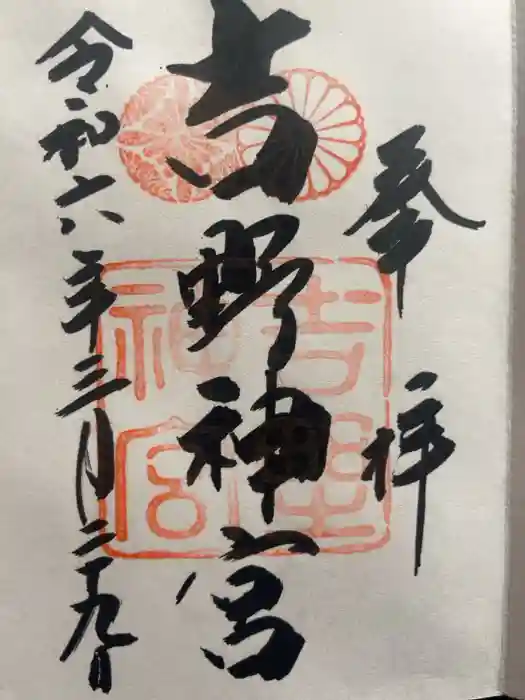 奉拝
吉野神宮
令和六年三月二十九日
吉野神宮